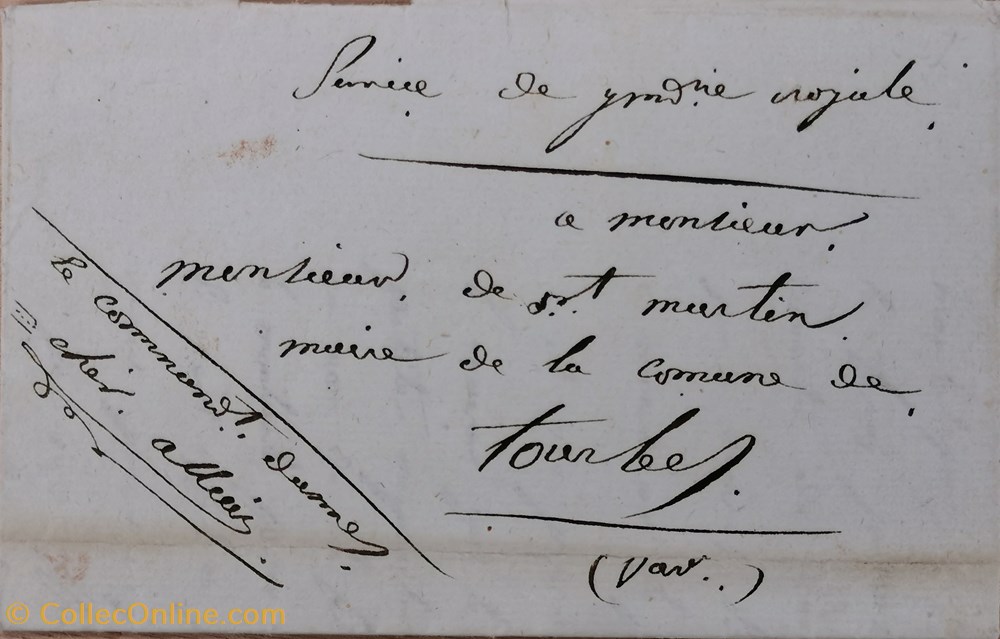 Service de gmdrie royale.
a monsieur.
monsieur, de st martin.
maire de la comune de
tourbes.
(Var..)
le commandt. darmes.
chev.
© CollecOnline.com